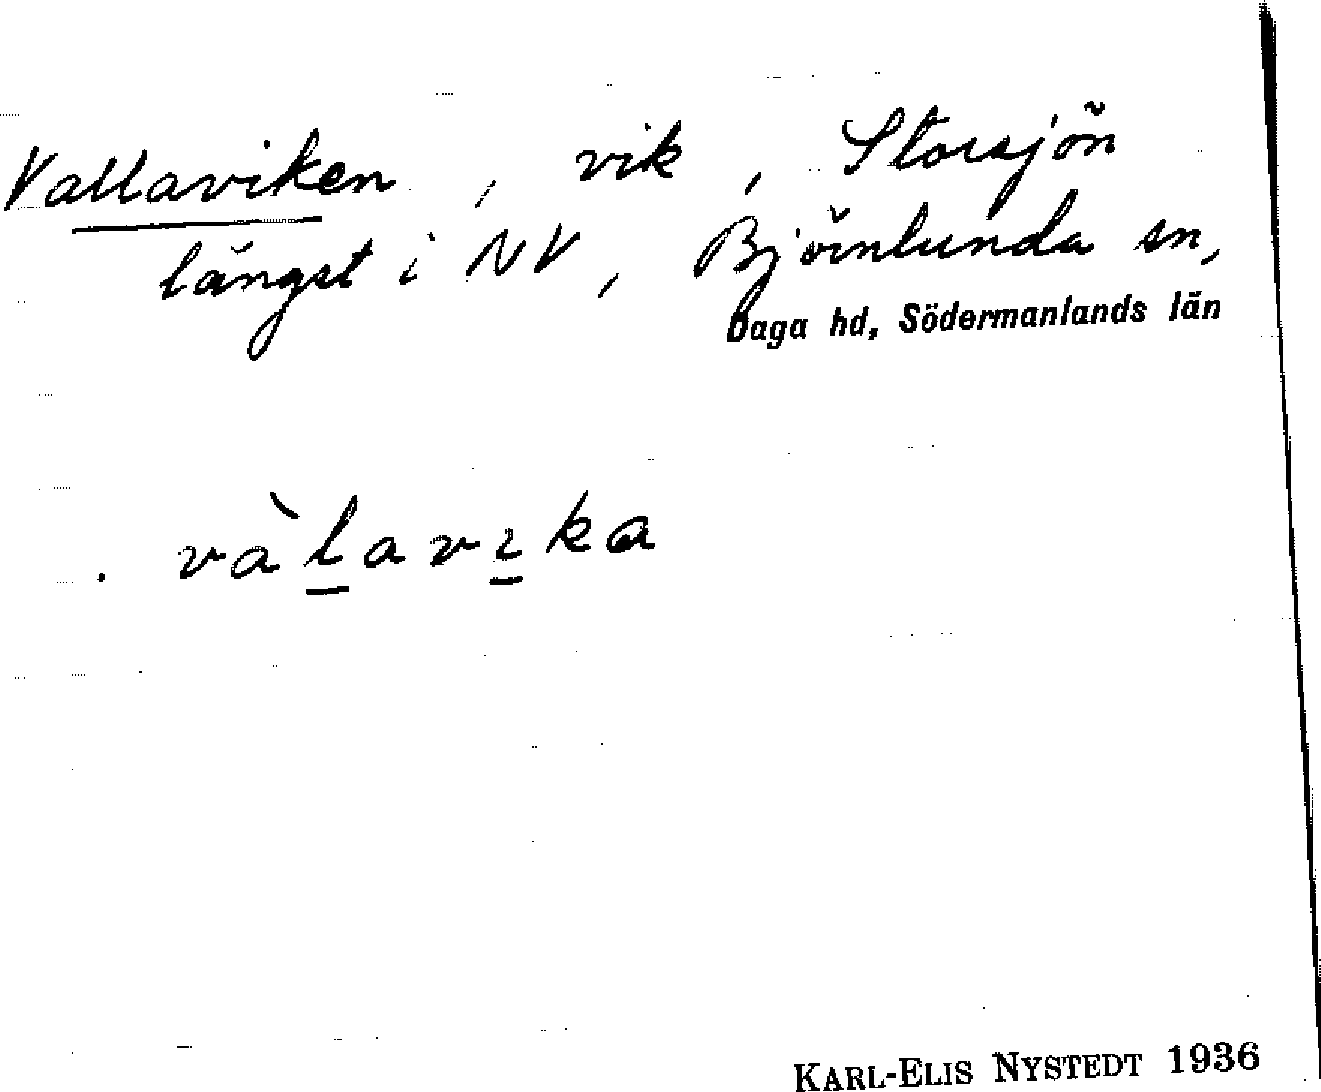 Vallaviken, vik, Storsjön
längst i NV, Björnlunda sn,
Daga hd, Södermanlands län
. va`lavıka
KARL-ELIS NYSTEDT 1936